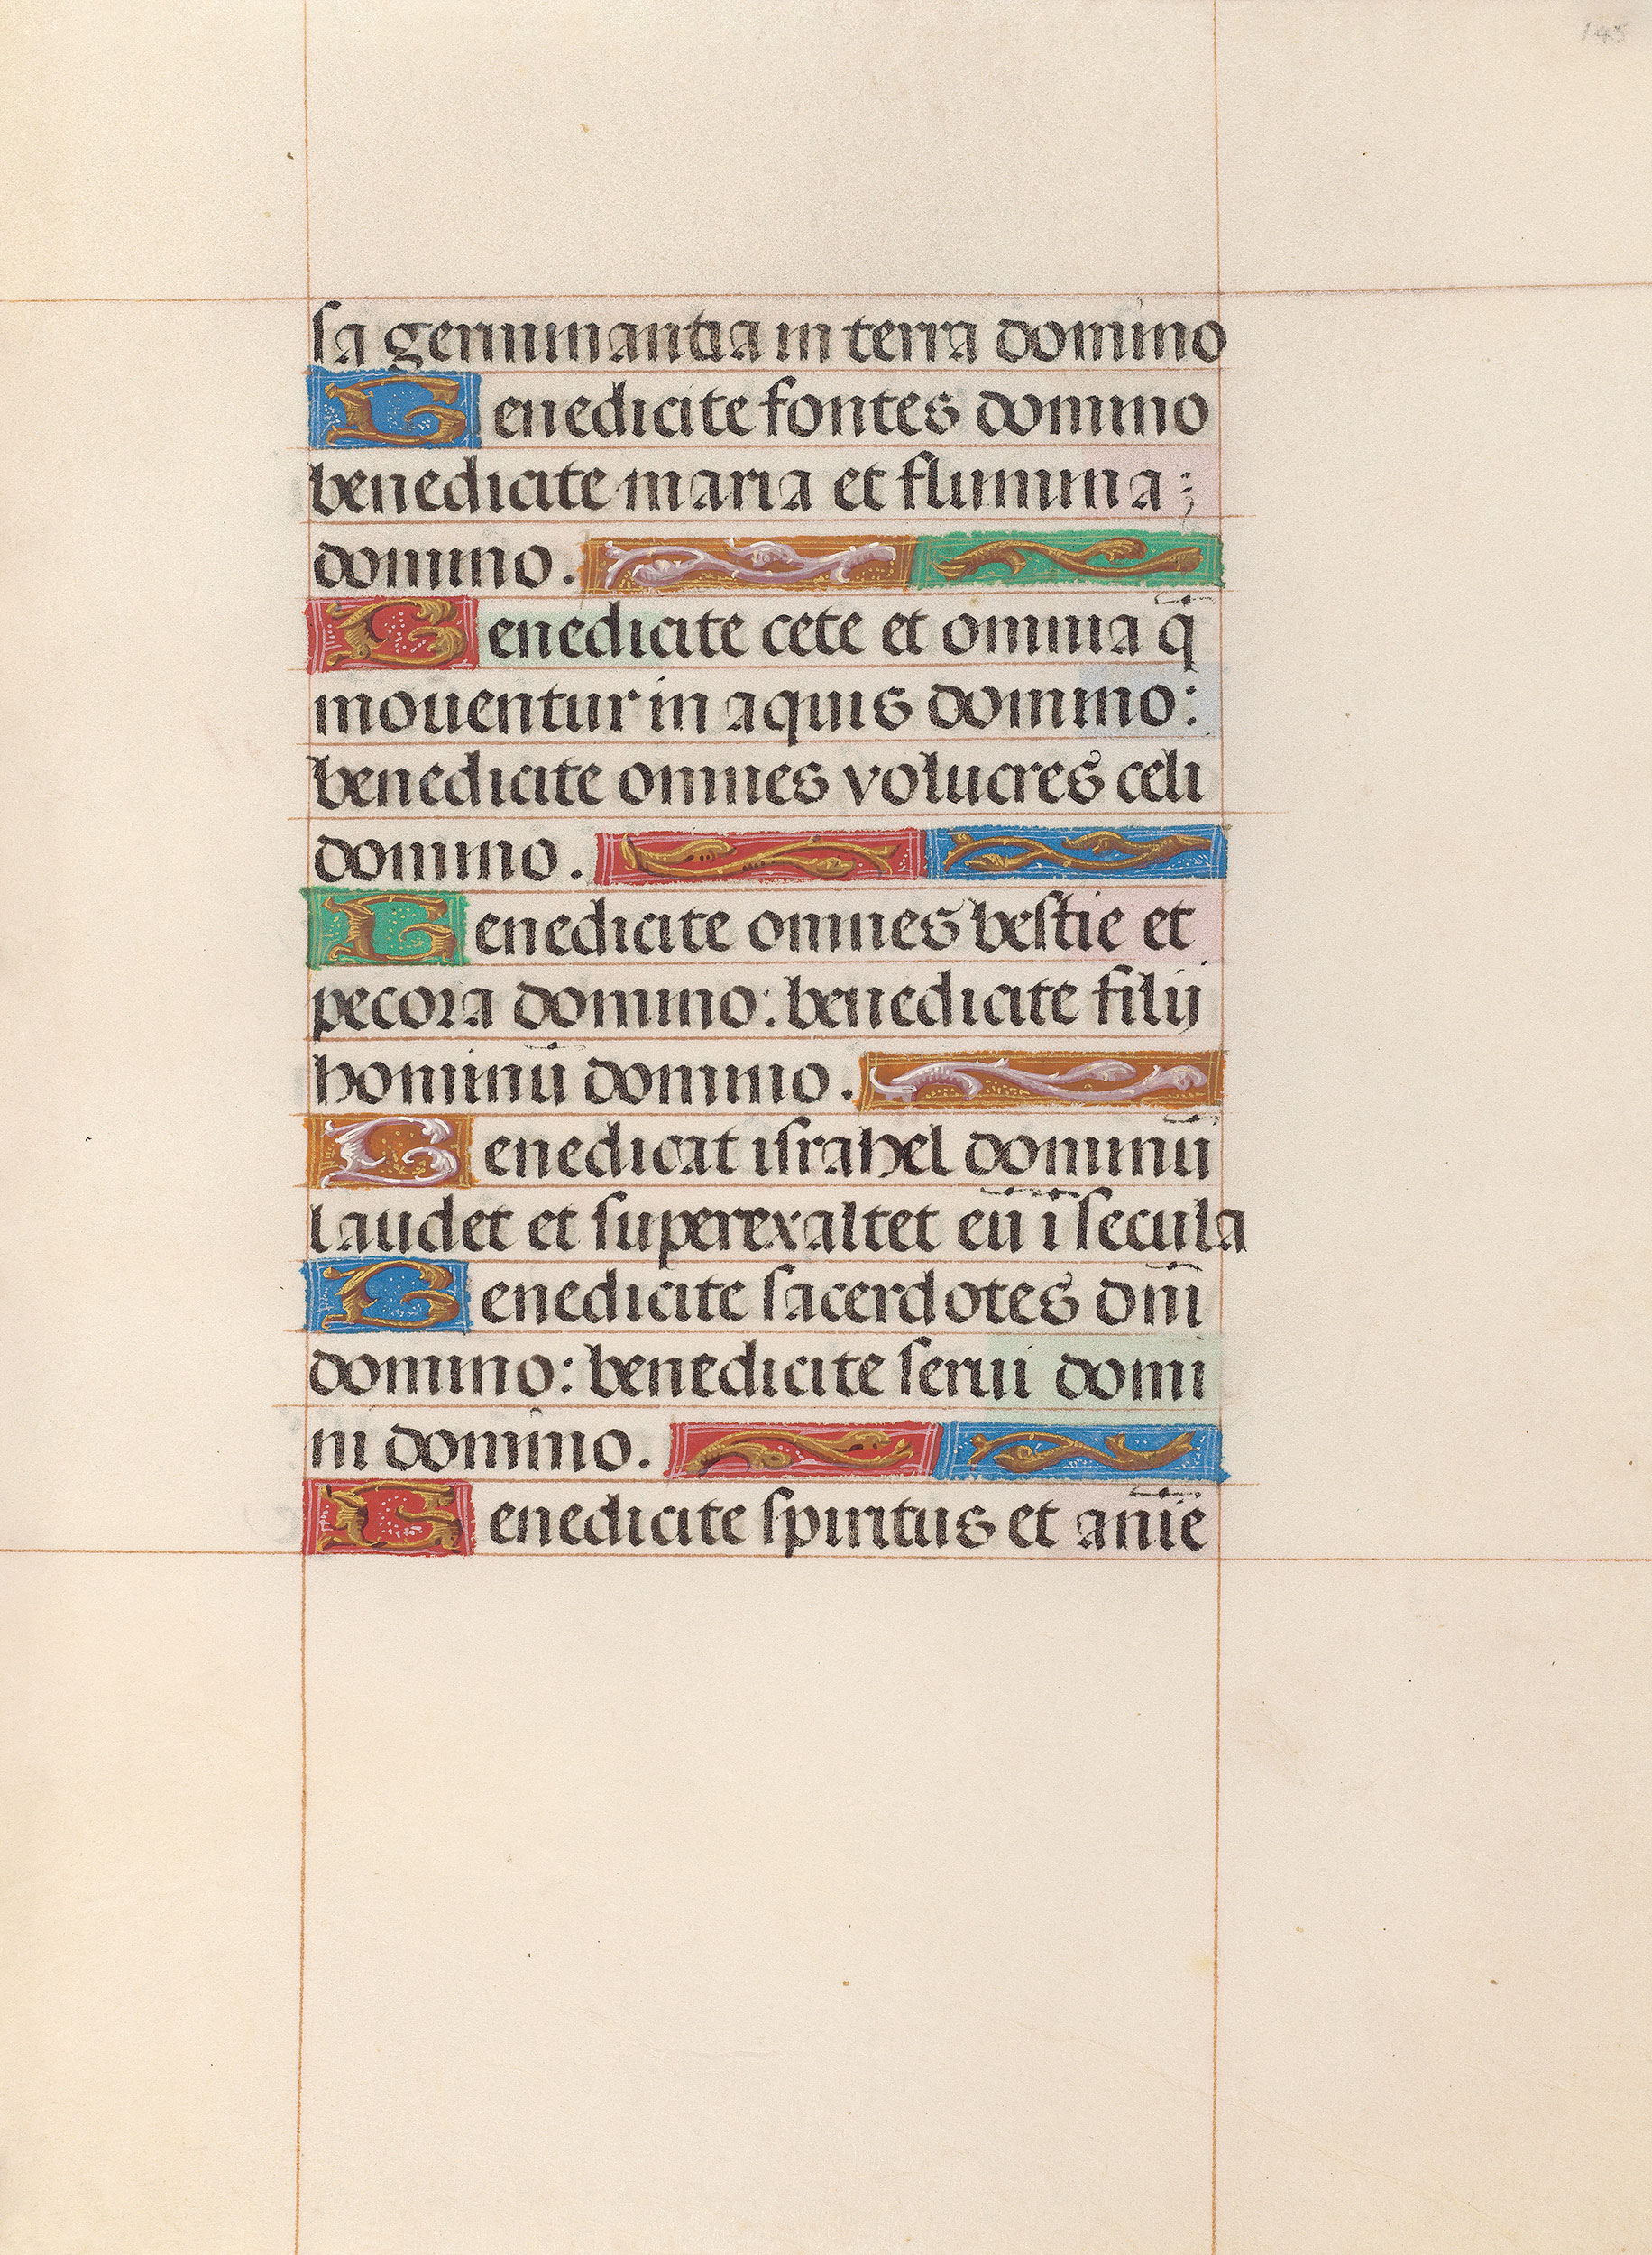 145
sa germinantia in terra domino
Benedicite fontes domino
benedicite maria et flumina:
domino.
Benedicite cete et omnia q̄
mouentur in aquis domino:
benedicite omnes volucres celi
domino.
Benedicite omnes bestie et
pecora domino: benedicite filij
hominū domino.
Benedicat israhel dominū
laudet et superexaltet eū ī secula
Benedicite sacerdotes dnī
domino: benedicite serui domi
ni domino.
Benedicite spiritus et anīe